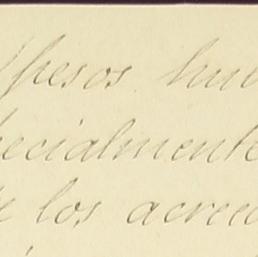 pesos hub
pecialmente
e los acreed